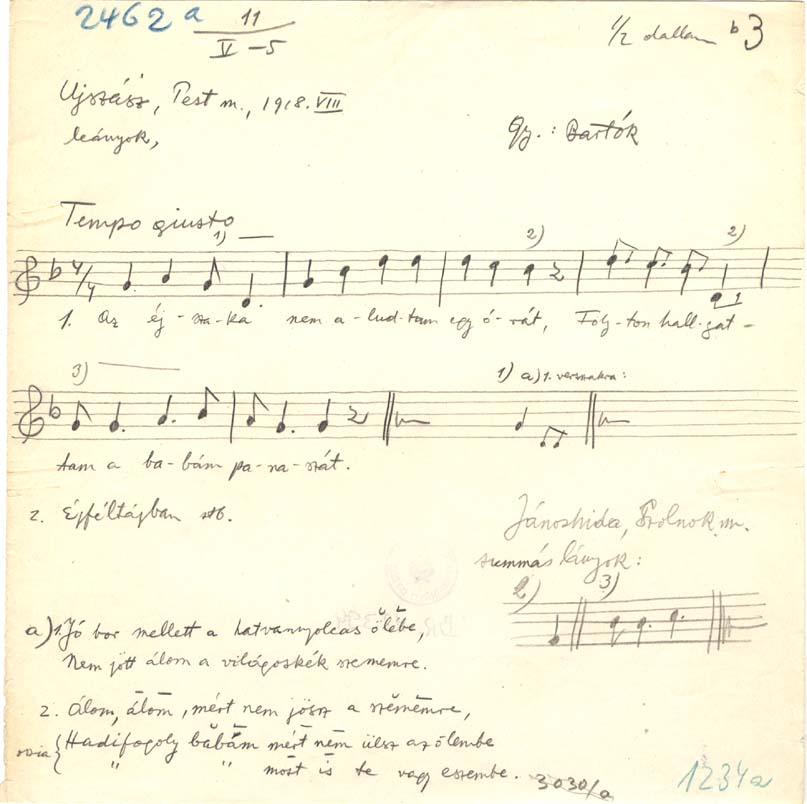 2462 a 11
V-5
1/2 dallam b 3
Ujszász, Pest m., 1918. VIII
leányok,
Gy.: Bartók
Tempo giusto
1)
2)
2)
4/4
1. Az éj-sza-ka nem a-lud-tam egy ó-rát, Foly-ton hall-gat-
3)
1) a) 1. versszakra:
tam a ba-bám pa-na-szát.
2. Éjféltájban stb.
Jánoshida, Szolnok m.
summás lányok:
2) 3)
a) 1. Jó bor mellett a hatvannyolcas ölébe,
Nem jött álom a világoskék szememre.
2. Álom, álom, mért nem jösz a szememre,
Hadifogoly babám mért nem ülsz az ölembe
" " most is te vagy eszembe.
3030/a
1234a